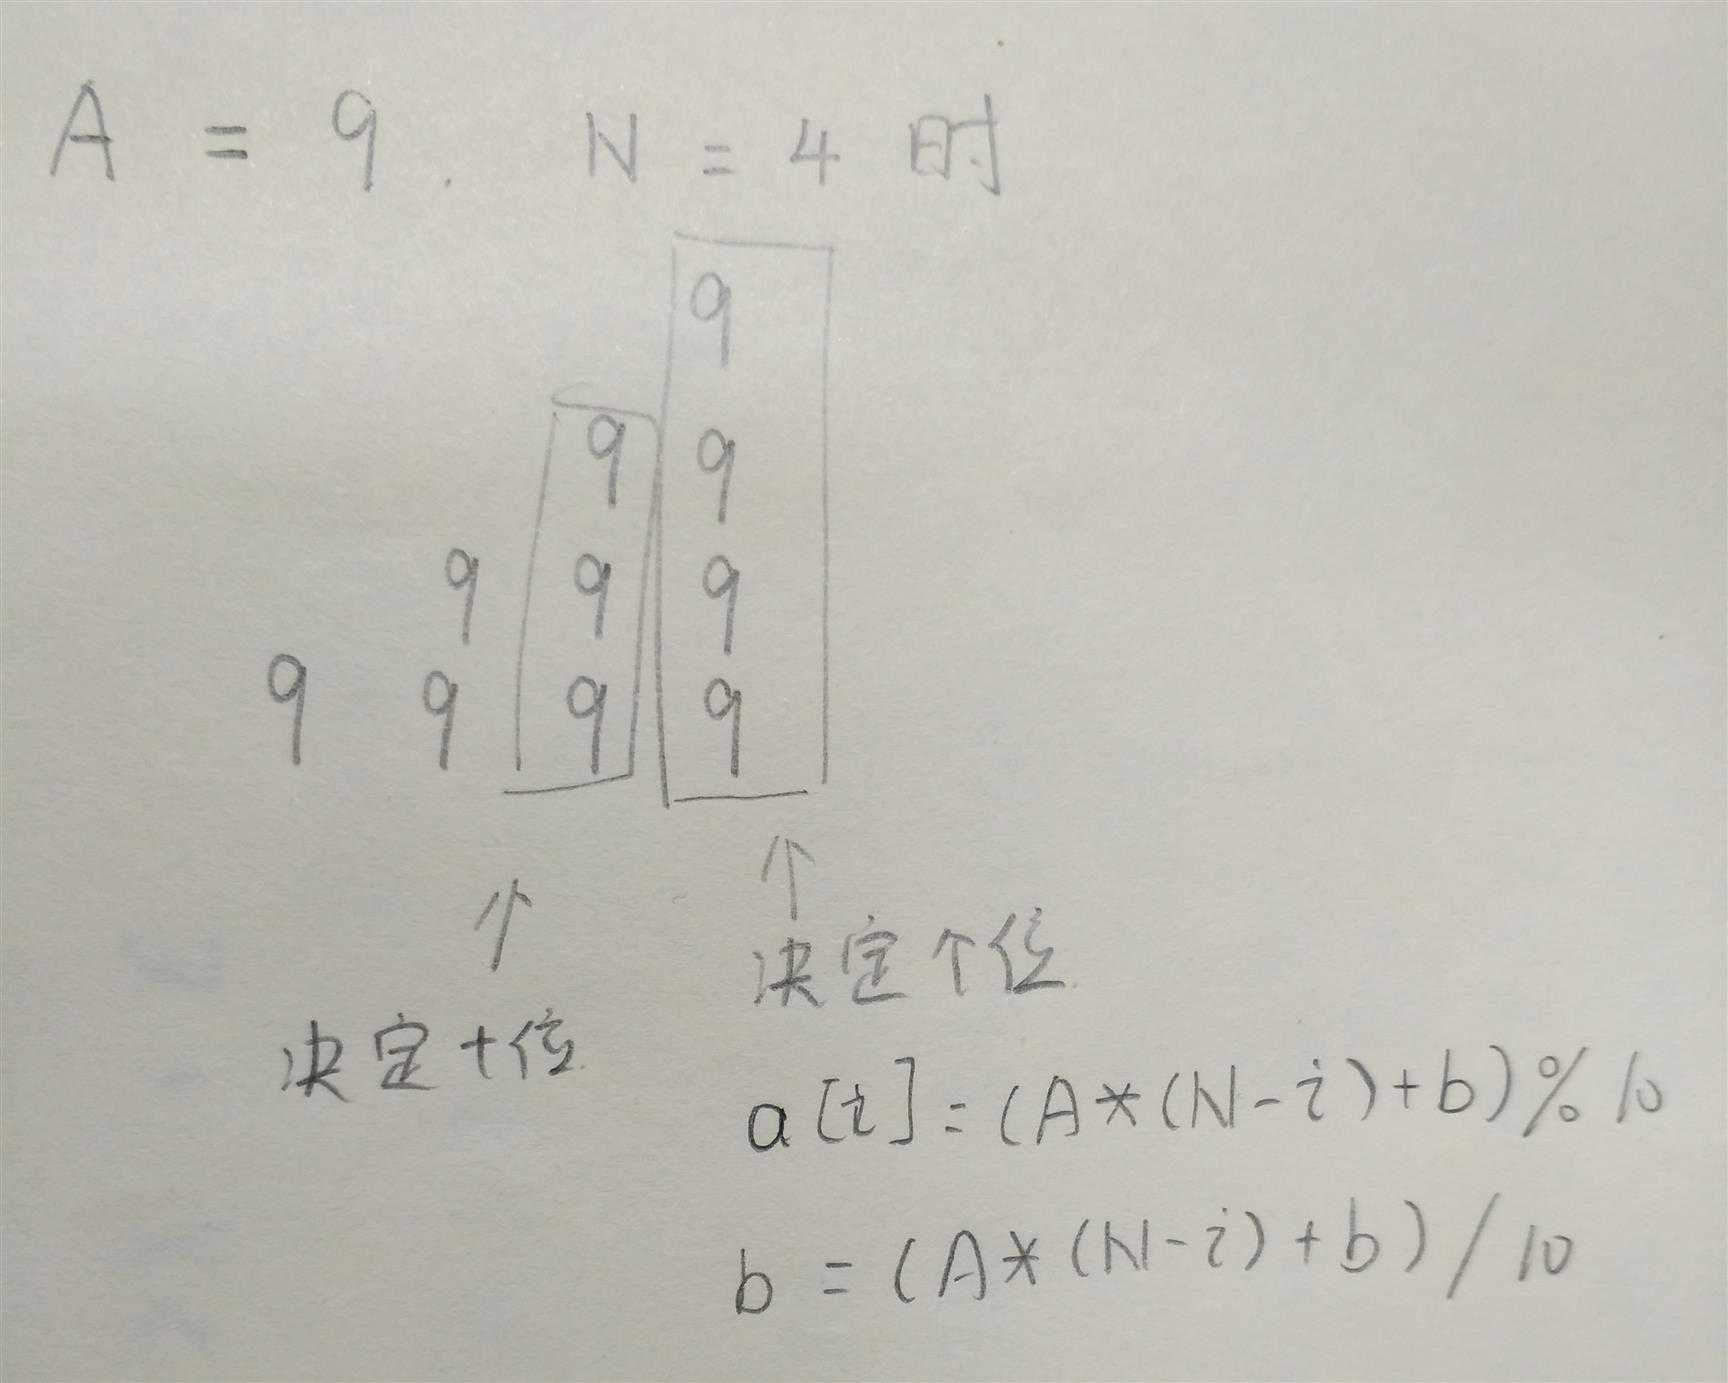 A = 9. N = 4 时
9
9 9
9 9 9
9 9 9 9
决定个位
决定十位
a[i]=(A*(N-i)+b)%10
b=(A*(N-i)+b)/10